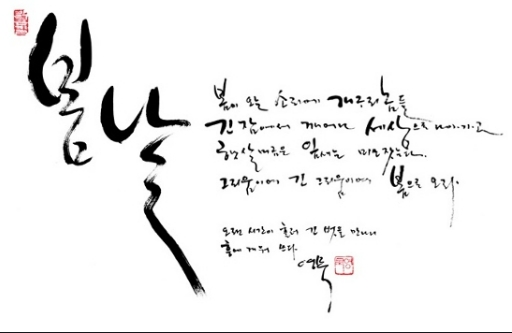 봄날
봄이 오는 소리에 개구리 놈들
긴 잠에서 깨어나 세상으로 나아가고
햇살 머금은 입새는 미소짓는다.
그리움이여 긴 그리움이여 봄으로 오라.
오랜 시간이 흘러 긴 벗을 만나니
흥에 겨워 쓰다